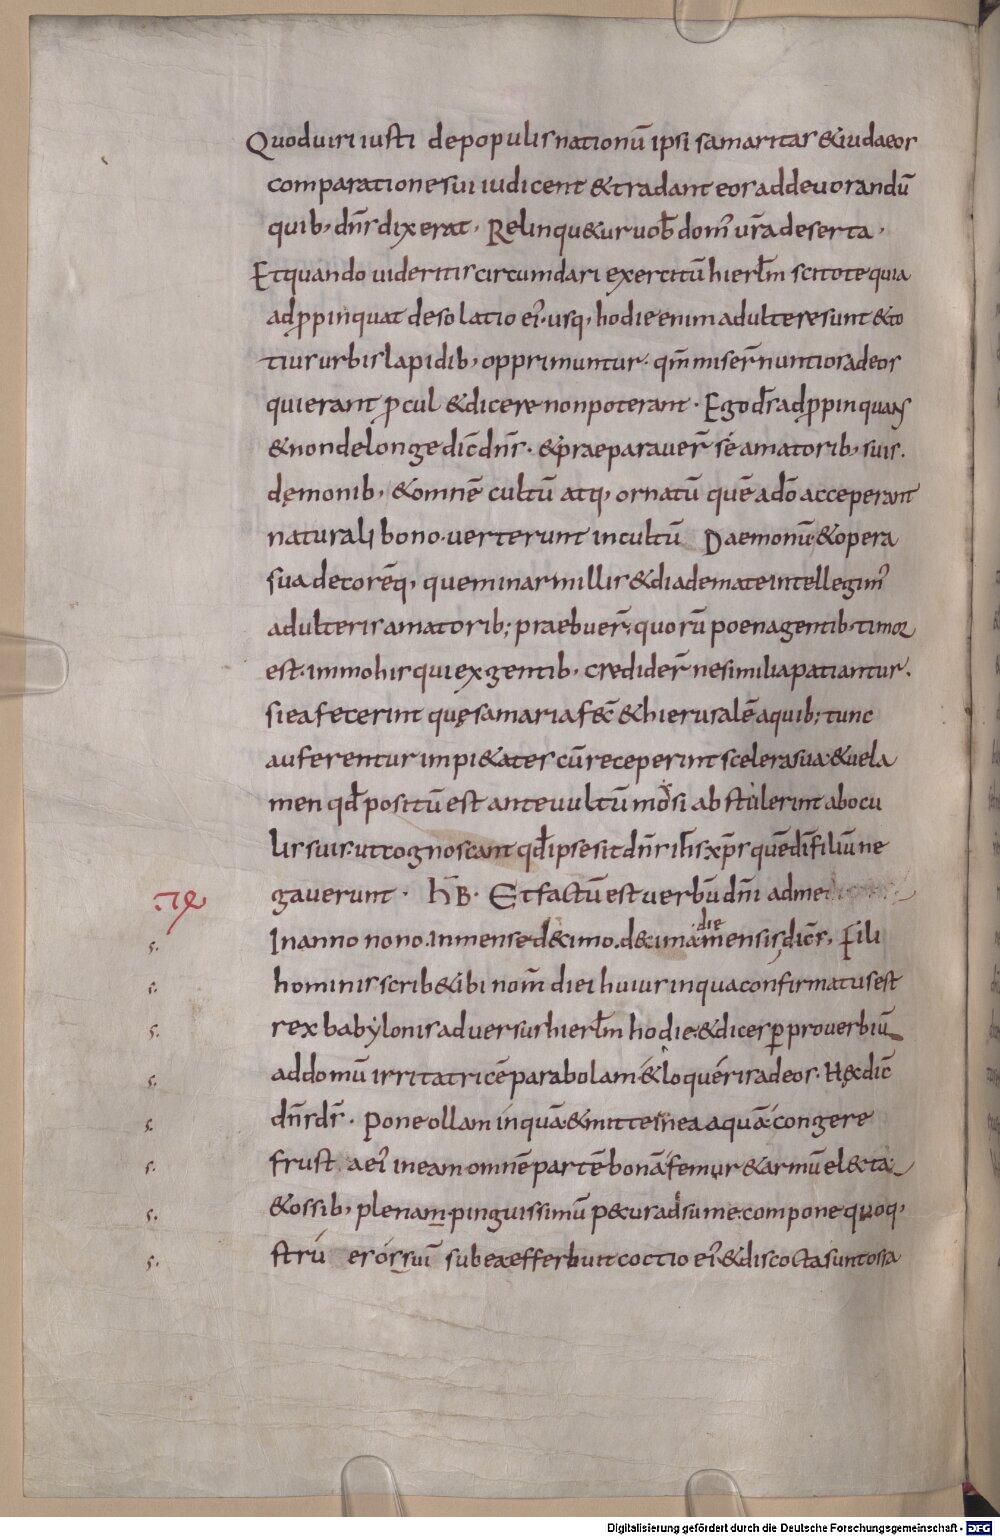 Quoduiri iusti depopulisnationū ipsi samaritas &iudaeos
comparationesui iudicent &tradant eosaddeuorandū
quib; dn̄sdixerat. Relinqu&uruob̄ dom̄ ur̄adeserta.
Etquando uideritiscircumdari exercitū hierl̄m scitotequia
adp̄pinquat desolatio ei᾿. usq; hodieenim adulteresunt &to
tiusurbislapidib; opprimuntur. qm̄miser̄nuntiosadeos
quierant p̄cul &dicerenonpoterant. Egod̄sadp̄pinquans
&nondelonge dic̄dn̄s. &praeparauer̄ sé amatorib; suis.
dęmonib; &omnē cultū atq; ornatū quē adō acceperant
naturali bono. uerterunt incultū Daemonū&opera
sua decorēq; queminarmillis&diademateintellegim᾿
adulterisamatorib; praebuer̄. quorū poenagentib. timor
est. immohisquiexgentib; credider̄ nesimiliapatiantur.
sieafecerint quęsamariafec̄ &hierusalēaquib; tunc
auferenturimpi&ates cūreceperintscelerasua. &uela
men qd̄ positū est anteuultū mosi abstulerint abocu
lissuis. utcognoscant qd̄ipsesitdn̄sih̄sxp̄s quēdīfiliūne
gauerunt. h̄B. Etfactū est uerbū dn̄i adme
Inanno nono. Inmensedecimo. decimadięmensis, dicēs. Fili
hominisscrib&ibi nom̄ diei huiusinquaconfirmatusest
rex babylonisaduersushierl̄m hodie. &dicesp̄prouerbiū
addomū irritatricē parabolam&loquérisadeos. Hęcdic̄
dn̄sd̄s. Poneollam ínquā&mitteínea aquā. cóngere
frust aei᾿ ineam omnēpartēbonāfemur&armūel&ta
&ossib; plenam. pinguissimū p&usadsume. compone quoq;
strú erórsuī subea. efferbuitcoctio ei᾿. &discoctasuntossa
s.
s.
s.
s.
s.
s.
s.
s.
Digitalisierung gefördert durch die Deutsche Forschungsgemeinschaft - DFG